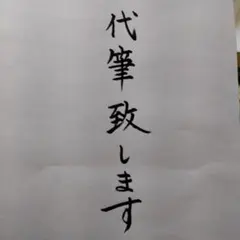 代筆致します